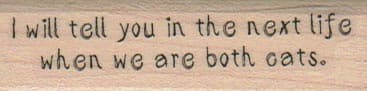 I will tell you in the next life
when we are both cats.